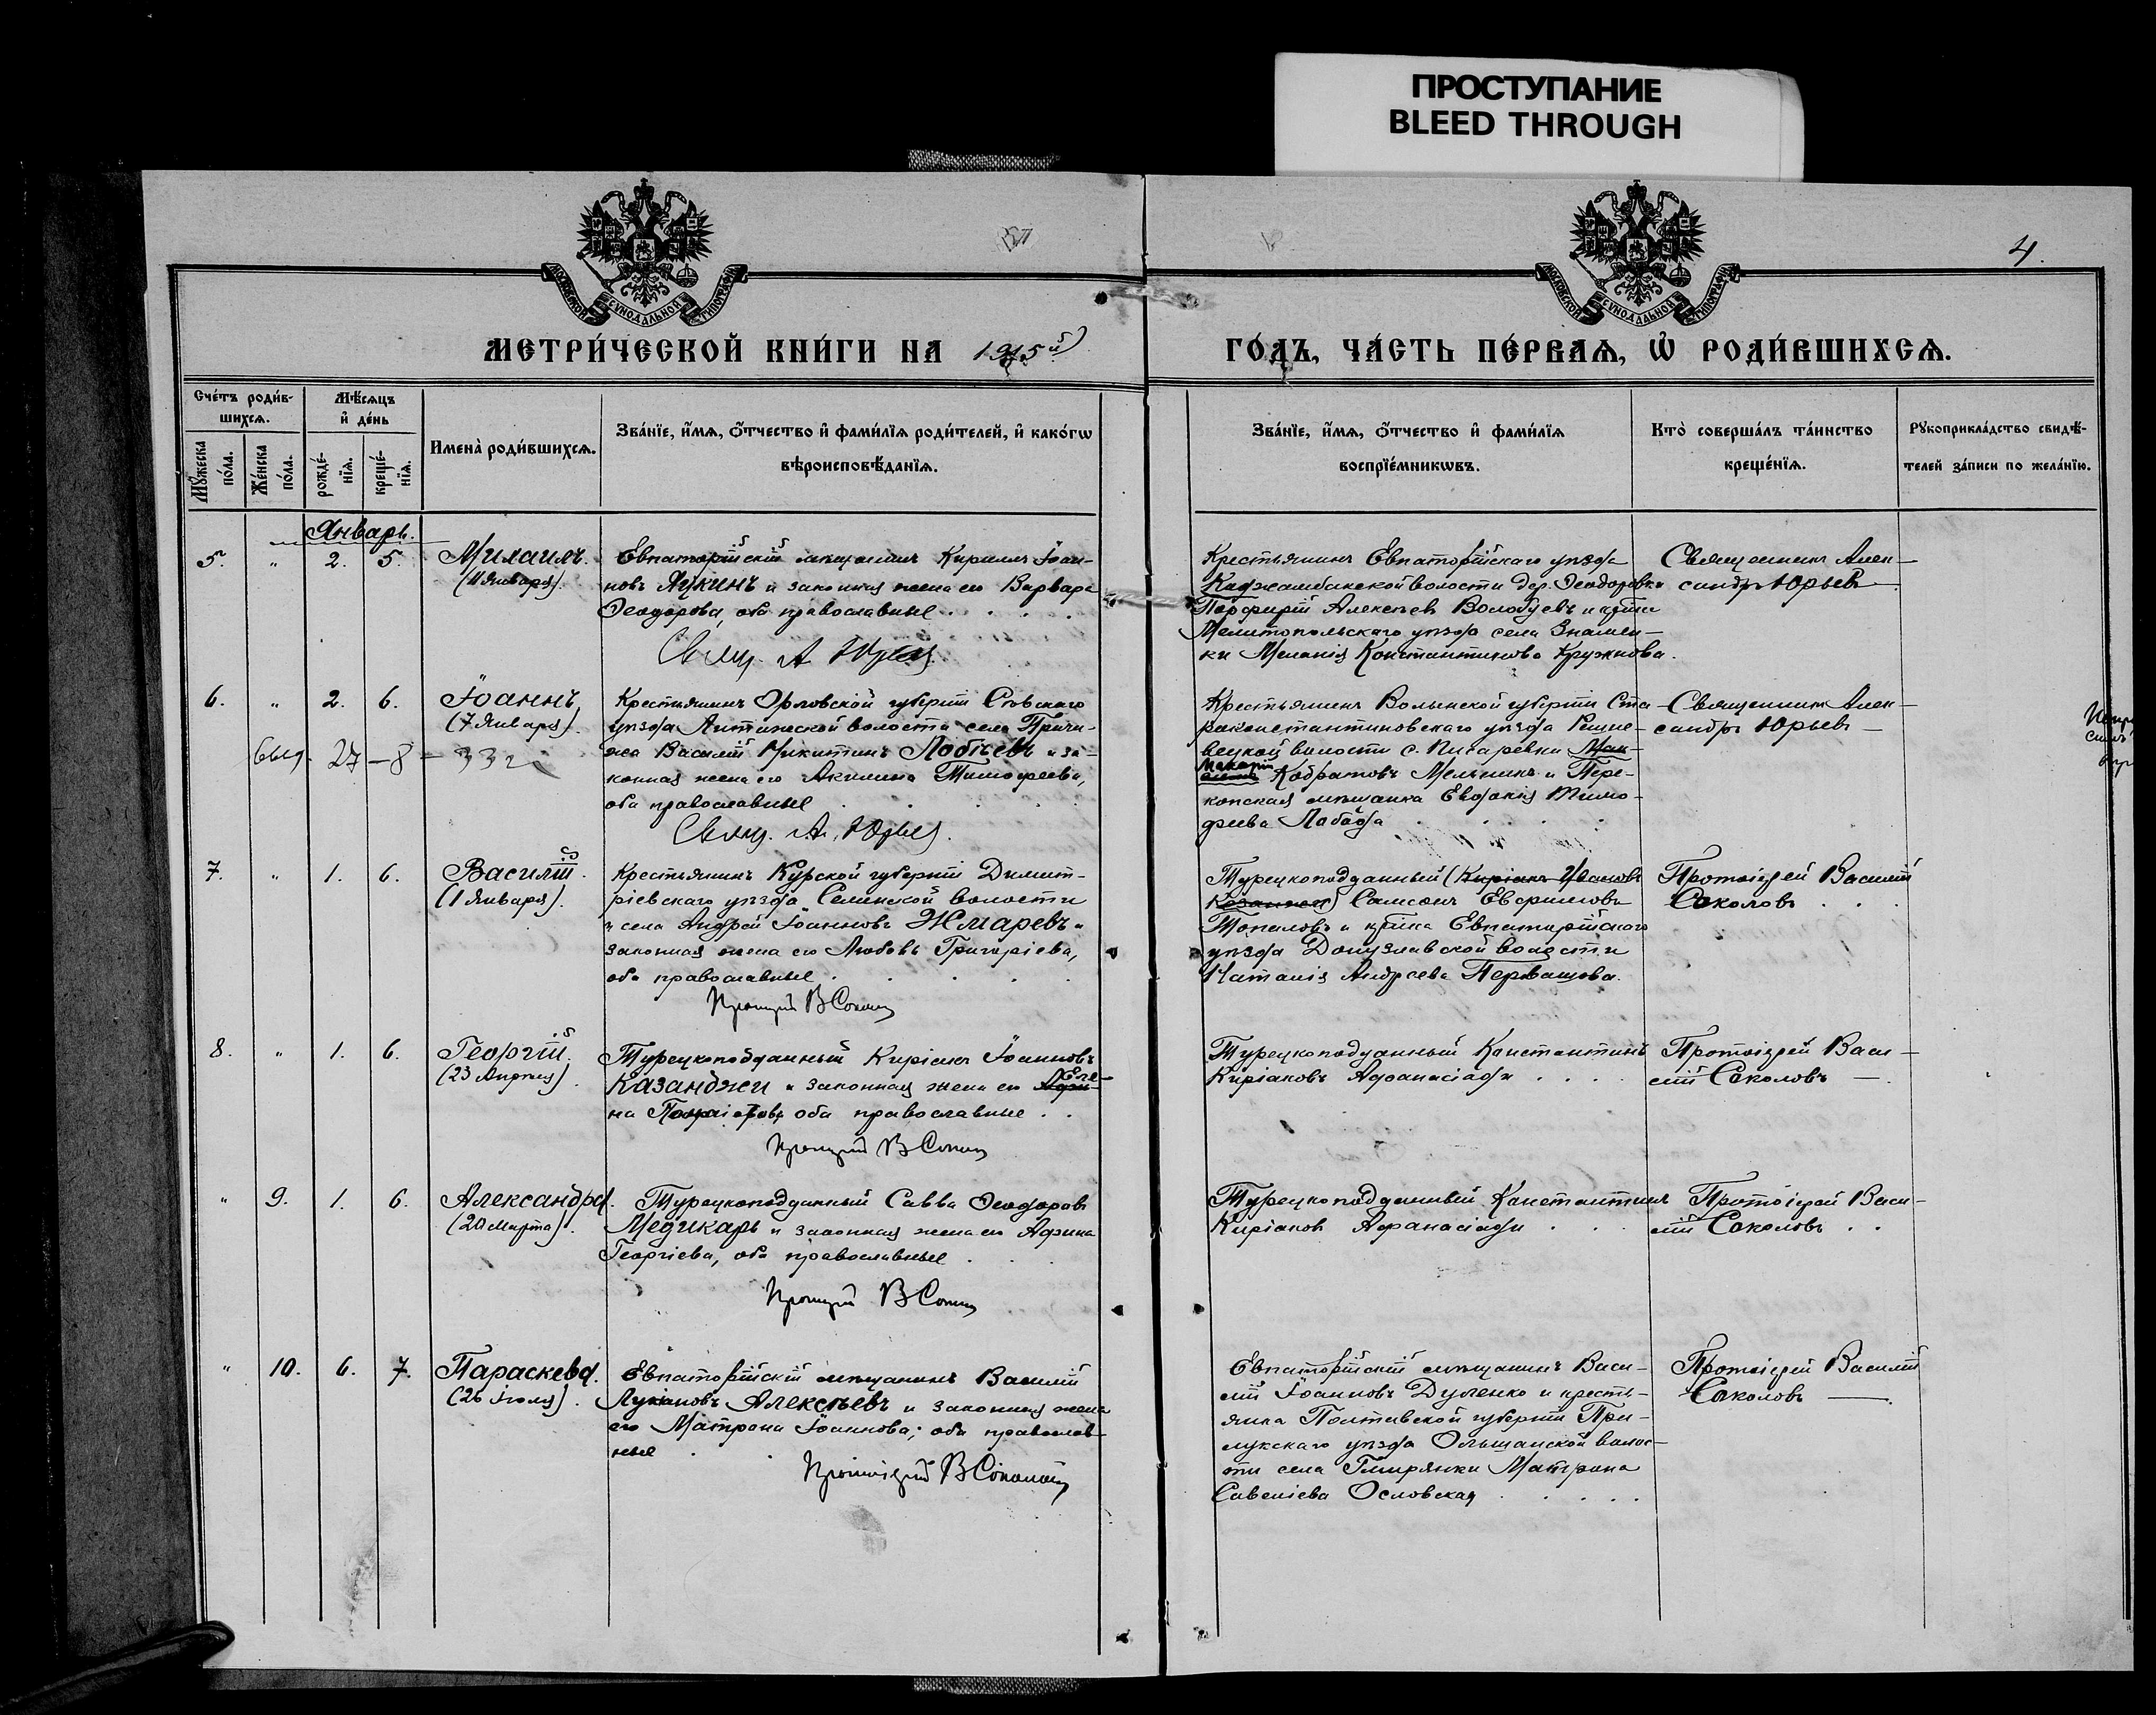 ПРОСТУПАНИЕ
BLEED THROUGH
МОСКОВСКОЙ СѴНОДАЛЬНОЙ ТИПОГРАФІИ
МОСКОВСКОЙ СѴНОДАЛЬНОЙ ТИПОГРАФІИ
4.
МЕТРИ́ЧЕСКОЙ КНИ́ГИ НА 1915й
ГО́ДЪ, ЧА́СТЬ ПЕ́РВАѦ, Ѡ҆ РОДИ́ВШИХСѦ.
Сче́тъ роди́в-
шихсѧ.
Мꙋ́жеска по́ла.
Же́нска по́ла.
Мѣ́сѧцъ
и҆ де́нь
рожде́-
нїѧ.
креще́-
нїѧ.
Имена̀ роди́вшихсѧ.
Зва́нїе, и҆́мѧ, ѻ҆́тчество и҆ фами́лїѧ роди́телей, и҆ како́гѡ
вѣроисповѣ́данїѧ.
Зва́нїе, и҆́мѧ, ѻ҆́тчество и҆ фами́лїѧ
воспрїе́мникѡвъ.
Кто̀ соверша́лъ та́инство
креще́нїѧ.
Рꙋкоприкла́дство свидѣ́-
телей за́писи по жела́нїю.
Январь.
5. " 2. 5. Михаилъ.
(11 Января).
Евпаторійскій мѣщанинъ Кириллъ Іоан-
новъ Лукинъ и законная жена его Варвара
Ѳеодорова, оба православные
Свящ. А Юрьев
Крестьянинъ Евпаторійскаго уѣзда
Каджамбакской волости дер. Ѳеодоровки
Порфирій Алексѣев Володуевъ и кр-нка
Мелитопольскаго уѣзда села Знамен-
ки Меланія Константинова Кружнова.
Священникъ Алек-
сандръ Юрьевъ
6. " 2. 6. Іоаннъ
(7 Января).
27 - 8 - 33 г
Крестьянинъ Орловской губерніи Сѣвскаго
уѣзда Литижской волости села Причи-
жа Василій Никитинъ Лобтевъ и за-
конная жена его Акилина Тимоѳеева,
оба православные
Свящ. А. Юрьев.
Крестьянинъ Волынской губерніи Ста-
роконстантиновскаго уѣзда Решне-
вецкой волости с. Писаревки Мак-
Макарій
Кодратовъ Мельникъ и Пере-
копская мѣщанка Евдокія Тимо-
ѳеева Лабода
Священникъ Алек-
сандръ Юрьевъ
7. " 1. 6. Василій.
(1 Января).
Крестьянинъ Курской губерніи Димит-
ріевскаго уѣзда Селинской волости
и села Андрей Іоанновъ Жмаревъ и
законная жена его Любовь Григоріева,
оба православные
Протоіерей В Соколов
Турецкоподданный (Киріакъ Ивановъ
Казанжи) Самсонъ Евѳимовъ
Топаловъ и кр-нка Евпаторійскаго
уѣзда Донузлавской волости
Наталія Андреева Первашова.
Протоіерей Василій
Соколовъ
8. " 1. 6. Георгій.
(23 Апрѣля).
Турецкоподданный Киріакъ Іоанновъ
Казанджи и законная жена его Еле-
на оба православные
Протоіерей В Соколов
Турецкоподданный Константинъ
Киріаковъ Аѳанасіади
Протоіерей Васи-
лій Соколовъ
" 9. 1. 6. Александра.
(20 Марта).
Турецкоподданный Савва Ѳеодоровъ
Медикарь и законная жена его Аѳина
Георгіева, оба православные
Протоіерей В Соколов
Турецкоподданный Константинъ
Киріаков Аѳанасіади
Протоіерей Васи-
лій Соколовъ
" 10. 6. 7. Параскева.
(26 Іюля).
Евпаторійскій мѣщанинъ Василій
Лукіановъ Алексѣевъ и законная жена
его Матрона Іоаннова; оба православ-
ные
Протоіерей В Соколовъ
Евпаторійскій мѣщанинъ Васи-
лій Іоанновъ Дученко и кресть-
янка Полтавской губерніи При-
лукскаго уѣзда Ольшанской волос-
ти села Гмирянки Матрона
СавеліеваОсловская
Протоіерей Василій
Соколовъ